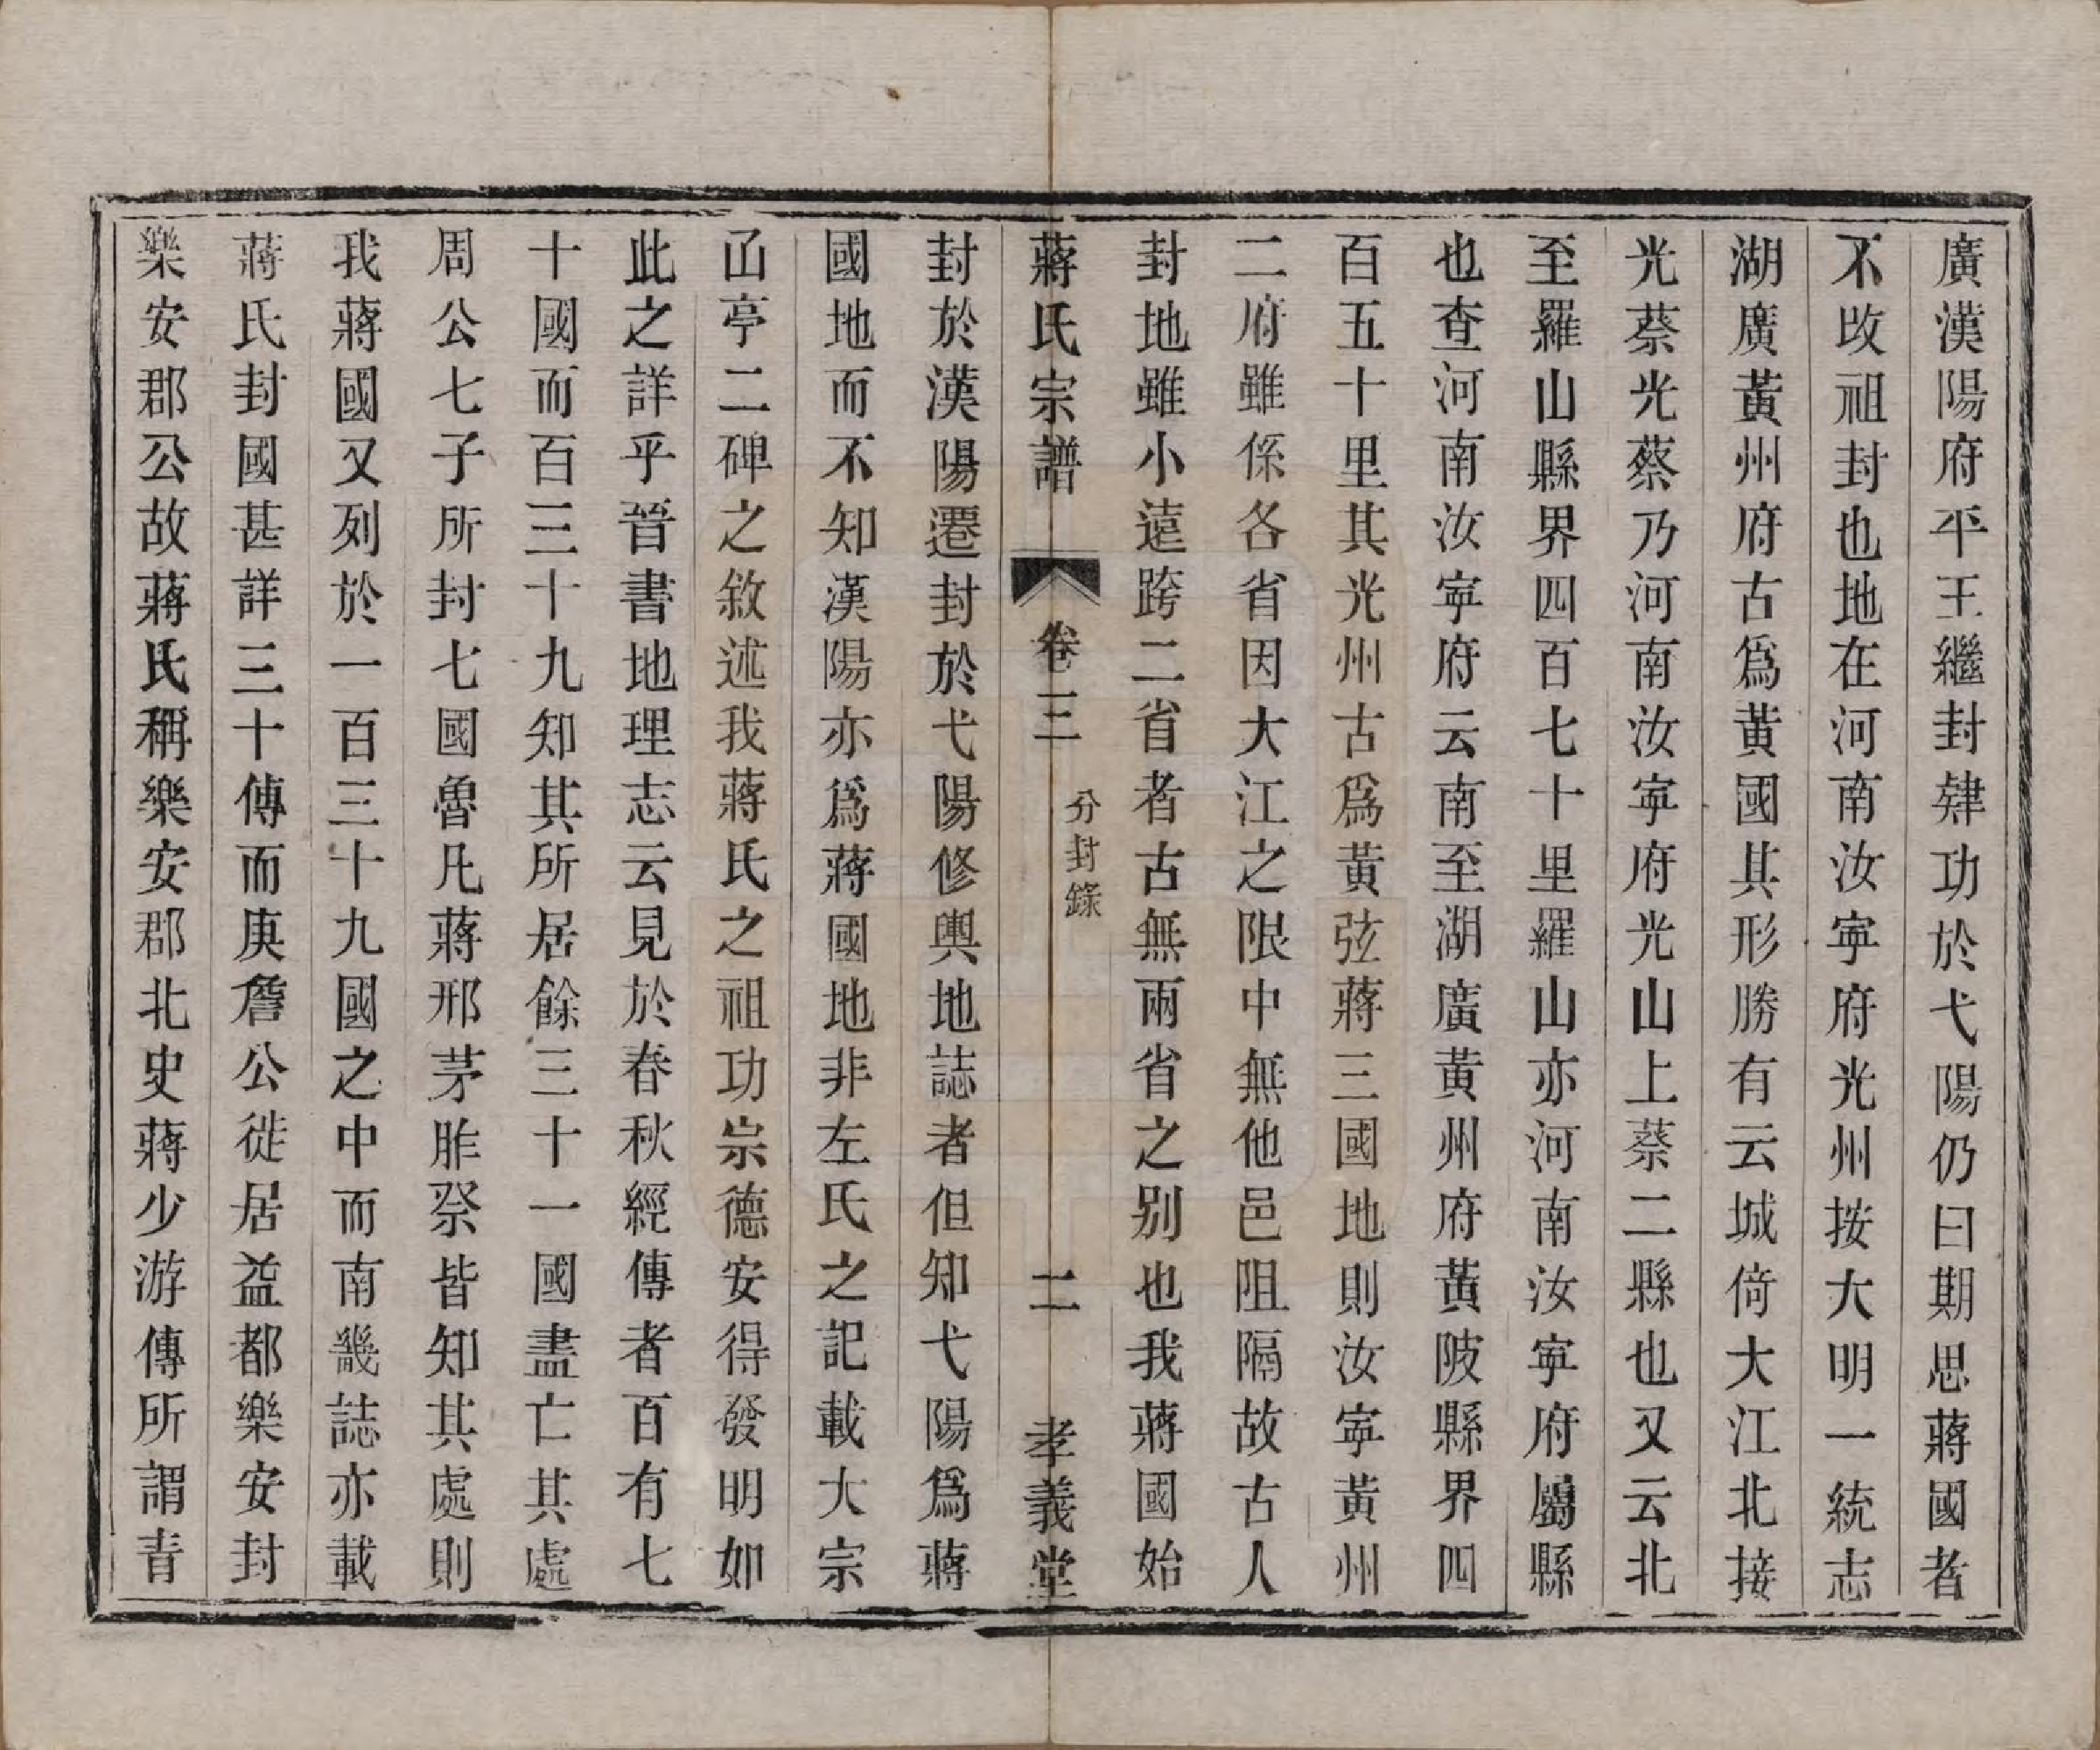 廣漢陽府平王繼封肄功於弋陽仍曰期思蔣國者
不改祖封也地在河南汝寕府光州按大明一統志
湖廣黃州府古爲黃國其形勝有云城倚大江北接
光蔡光蔡乃河南汝寕府光山上蔡二縣也又云北
至羅山縣界四百七十里羅山亦河南汝寕府屬縣
也查河南汝寕府云南至湖廣黃州府黃陂縣界四
百五十里其光州古爲黃弦蔣三國地則汝寕黃州
二府雖係各省因大江之限中無他邑阻隔故古人
封地雖小遠跨二省者古無兩省之别也我蔣國始
蔣氏宗譜 卷三 分封錄 二 孝義堂
封於漢陽遷封於弋陽修輿地誌者但知弋陽爲蔣
國地而不知漢陽亦爲蔣國地非左氏之記載大宗
凾亭二碑之敘述我蔣氏之祖功宗德安得發明如
此之詳乎晉書地理志云見於春秋經傳者百有七
十國而百三十九知其所居餘三十一國盡亡其處
周公七子所封七國魯凡蔣邢茅胙祭皆知其處則
我蔣國又列於一百三十九國之中而南畿誌亦載
蔣氏封國甚詳三十傳而庚詹公徙居益都樂安封
樂安郡公故蔣氏稱樂安郡北史蔣少游傳所謂青